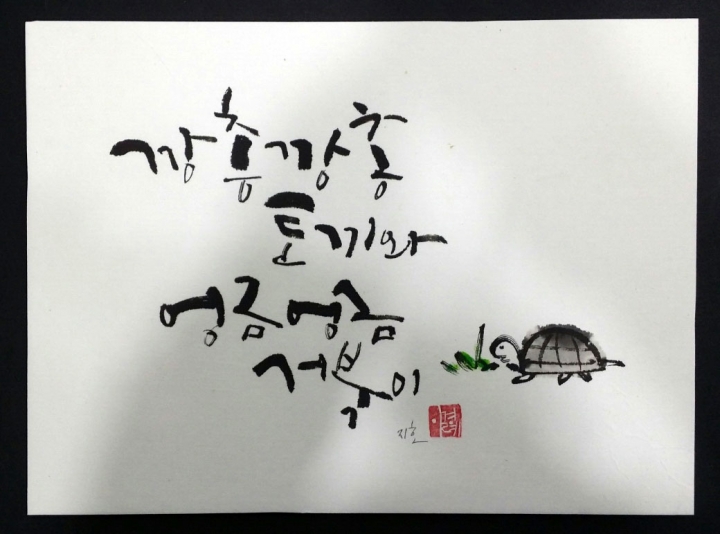 깡충깡충
토끼와
엉금엉금
거북이
지한